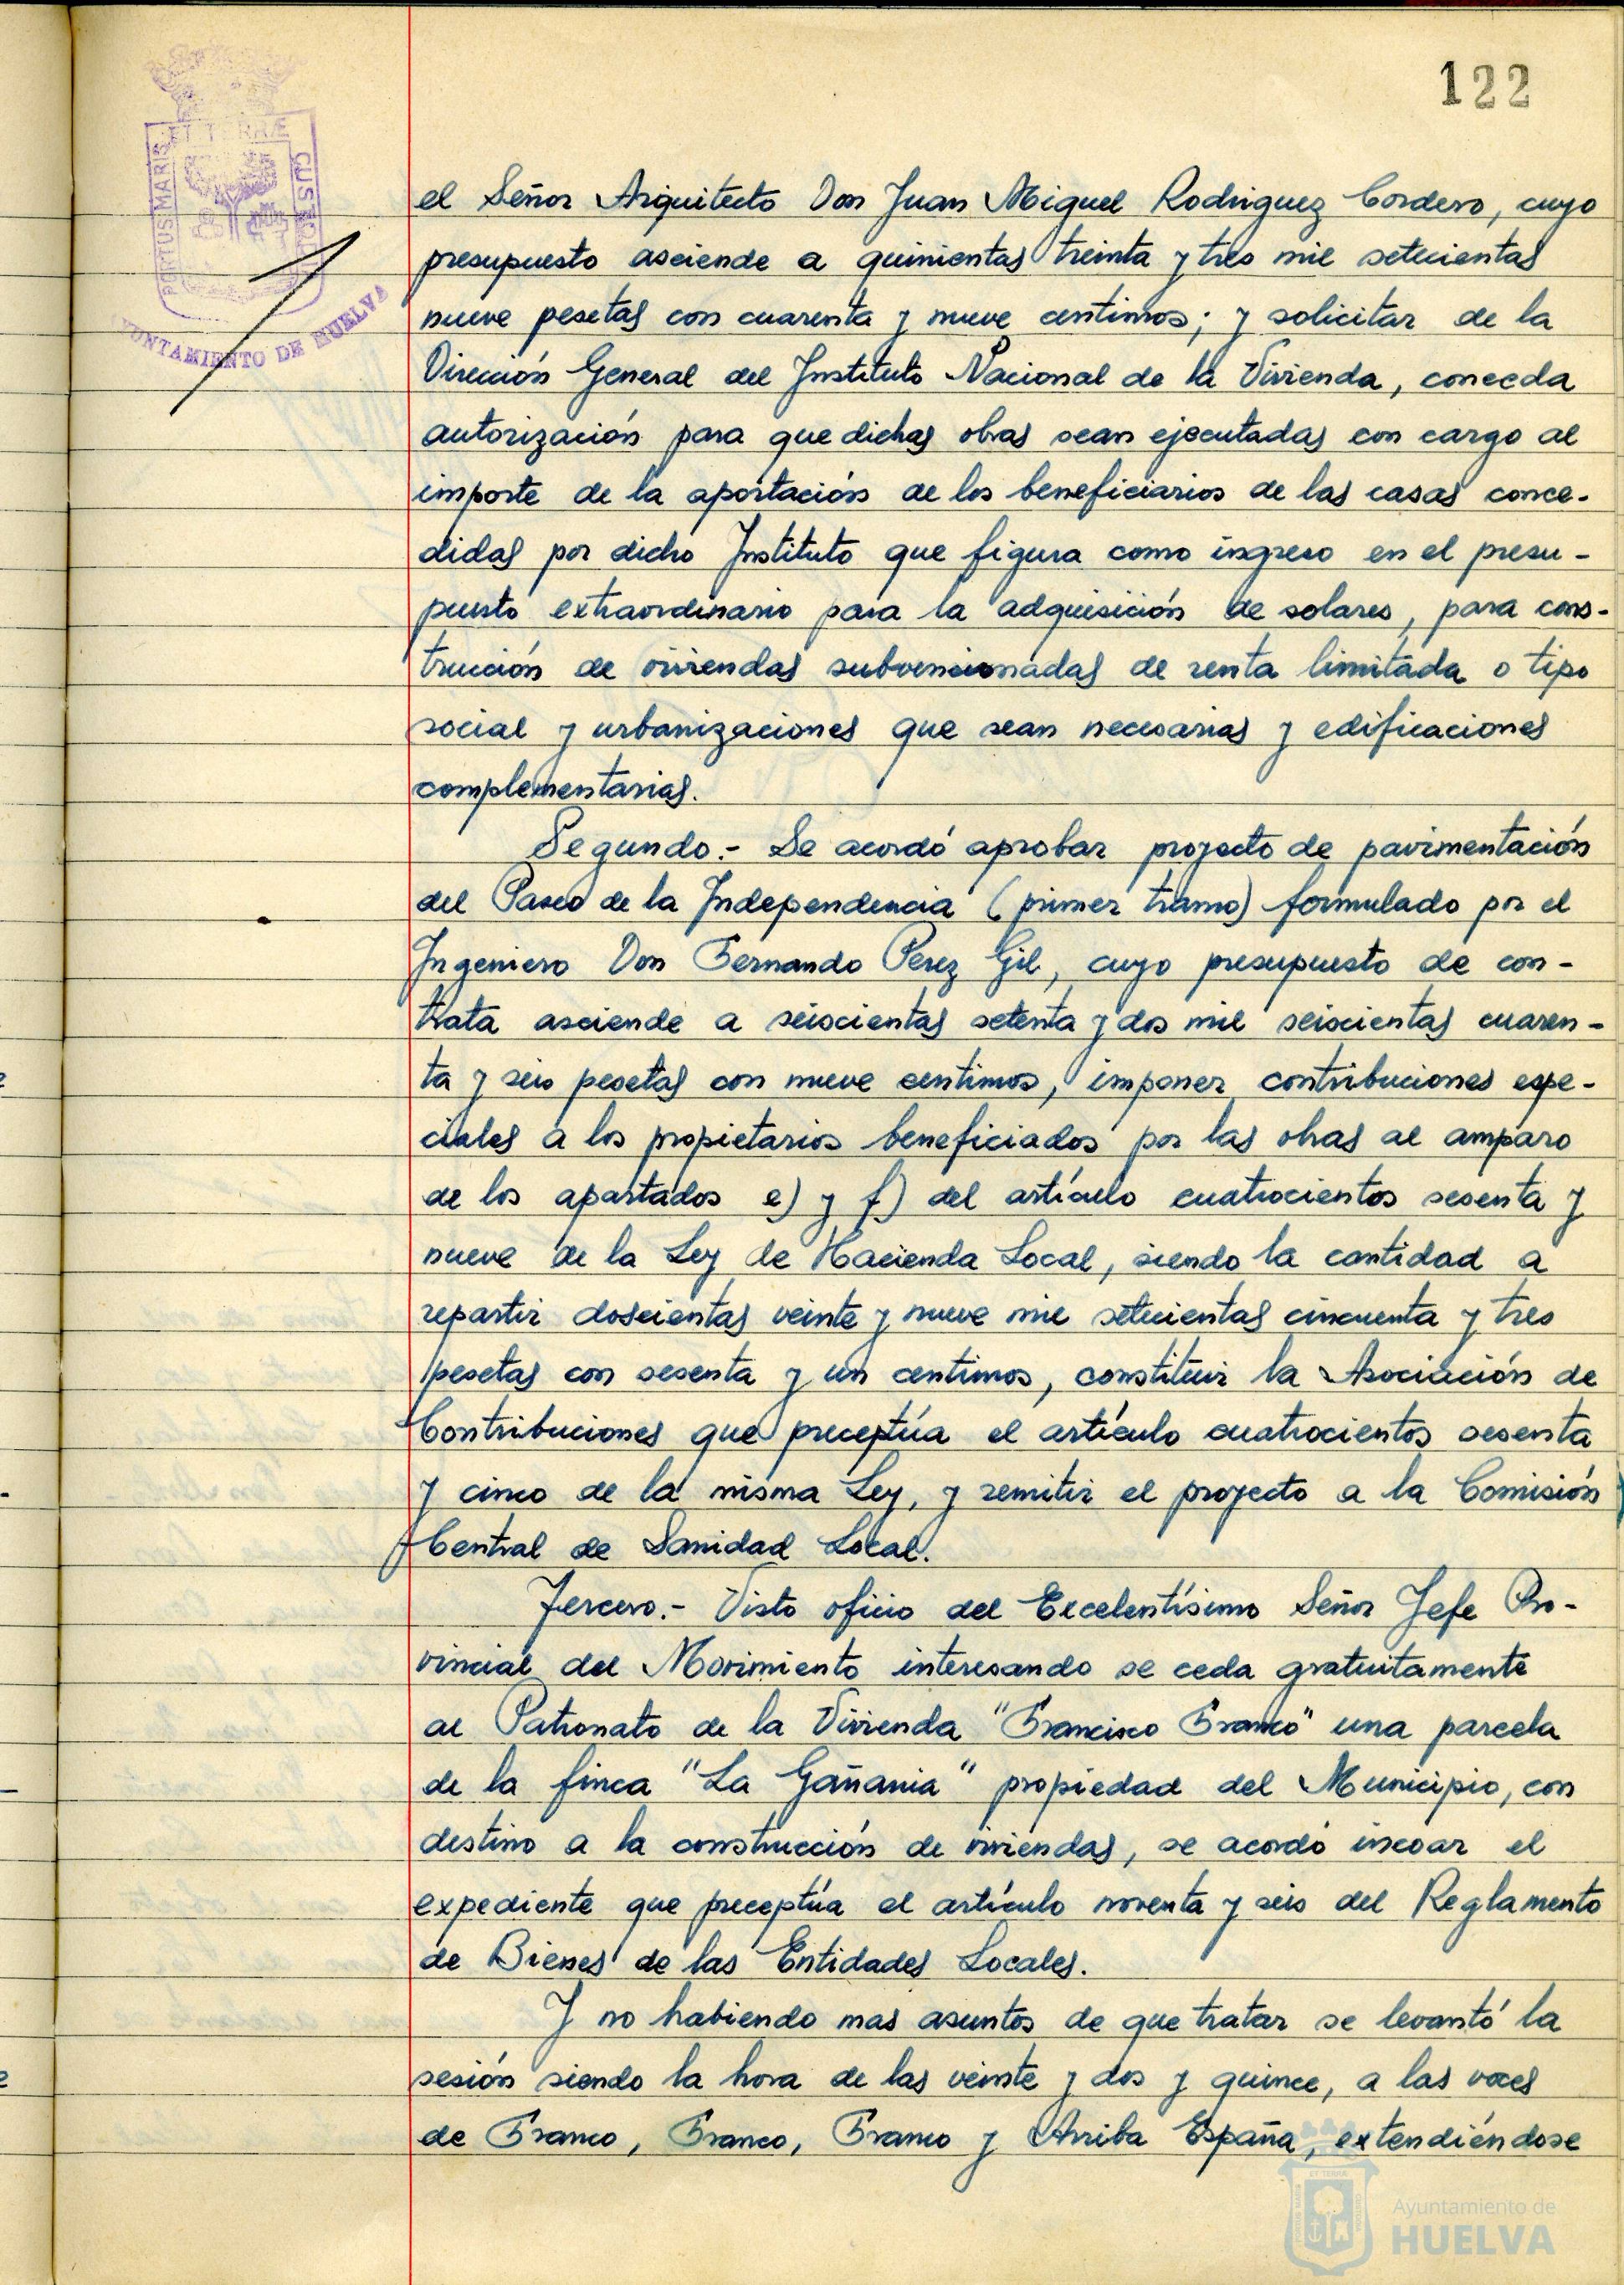 122
PORTUS MARIS ET TERRÆ CUSTODIA
AYUNTAMIENTO DE HUELVA
el Señor Arquitecto Don Juan Miguel Rodriguez Cordero, cuyo
presupuesto asciende a quinientas treinta y tres mil setecientas
nueve pesetas con cuarenta y nueve centimos; y solicitar de la
Dirección General del Instituto Nacional de la Vivienda, conceda
autorización para que dichas obras sean ejecutadas con cargo al
importe de la aportación de los beneficiarios de las casas conce-
didas por dicho Instituto que figura como ingreso en el presu-
puesto extraordinario para la adquisición de solares, para cons-
trucción de viviendas subvencionadas de renta limitada o tipo
social y urbanizaciones que sean necesarias y edificaciones
complementarias.
Segundo.- Se acordó aprobar proyecto de pavimentación
del Paseo de la Independencia (primer tramo) formulado por el
Ingeniero Don Fernando Perez Gil, cuyo presupuesto de con-
trata asciende a seiscientas setenta y dos mil seiscientas cuaren-
ta y seis pesetas con nueve centimos, imponer contribuciones espe-
ciales a los propietarios beneficiados por las obras al amparo
de los apartados e) y f) del artículo cuatrocientos sesenta y
nueve de la Ley de Hacienda Local, siendo la cantidad a
repartir doscientas veinte y nueve mil setecientas cincuenta y tres
pesetas con sesenta y un centimos, constituir la Asociación de
Contribuciones que preceptúa el artículo cuatrocientos sesenta
y cinco de la misma Ley, y remitir el proyecto a la Comisión
Central de Sanidad Local.
Tercero.- Visto oficio del Excelentísimo Señor Jefe Pro-
vincial del Movimiento interesando se ceda gratuitamente
al Patronato de la Vivienda "Francisco Franco" una parcela
de la finca "La Gañania" propiedad del Municipio, con
destino a la construcción de viviendas, se acordó incoar el
expediente que preceptúa el artículo noventa y seis del Reglamento
de Bienes de las Entidades Locales.
Y no habiendo mas asuntos de que tratar se levantó la
sesión siendo la hora de las veinte y dos y quince, a las voces
de Franco, Franco, Franco y Arriba España, extendiéndose
Ayuntamiento de
HUELVA